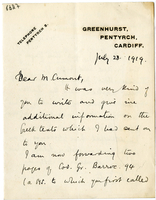 TELEPHONE
PENTYRCH 9.
GREENHURST,
PENTYRCH,
CARDIFF.
July 23. 1919.
Dear M Cumont,
It was very kind of
you to write and give me
additional information on the
Greek texts which I had sent on
to you
I am now forwarding two
pages of Cod. Gr. Barroc. 94
to which you first called